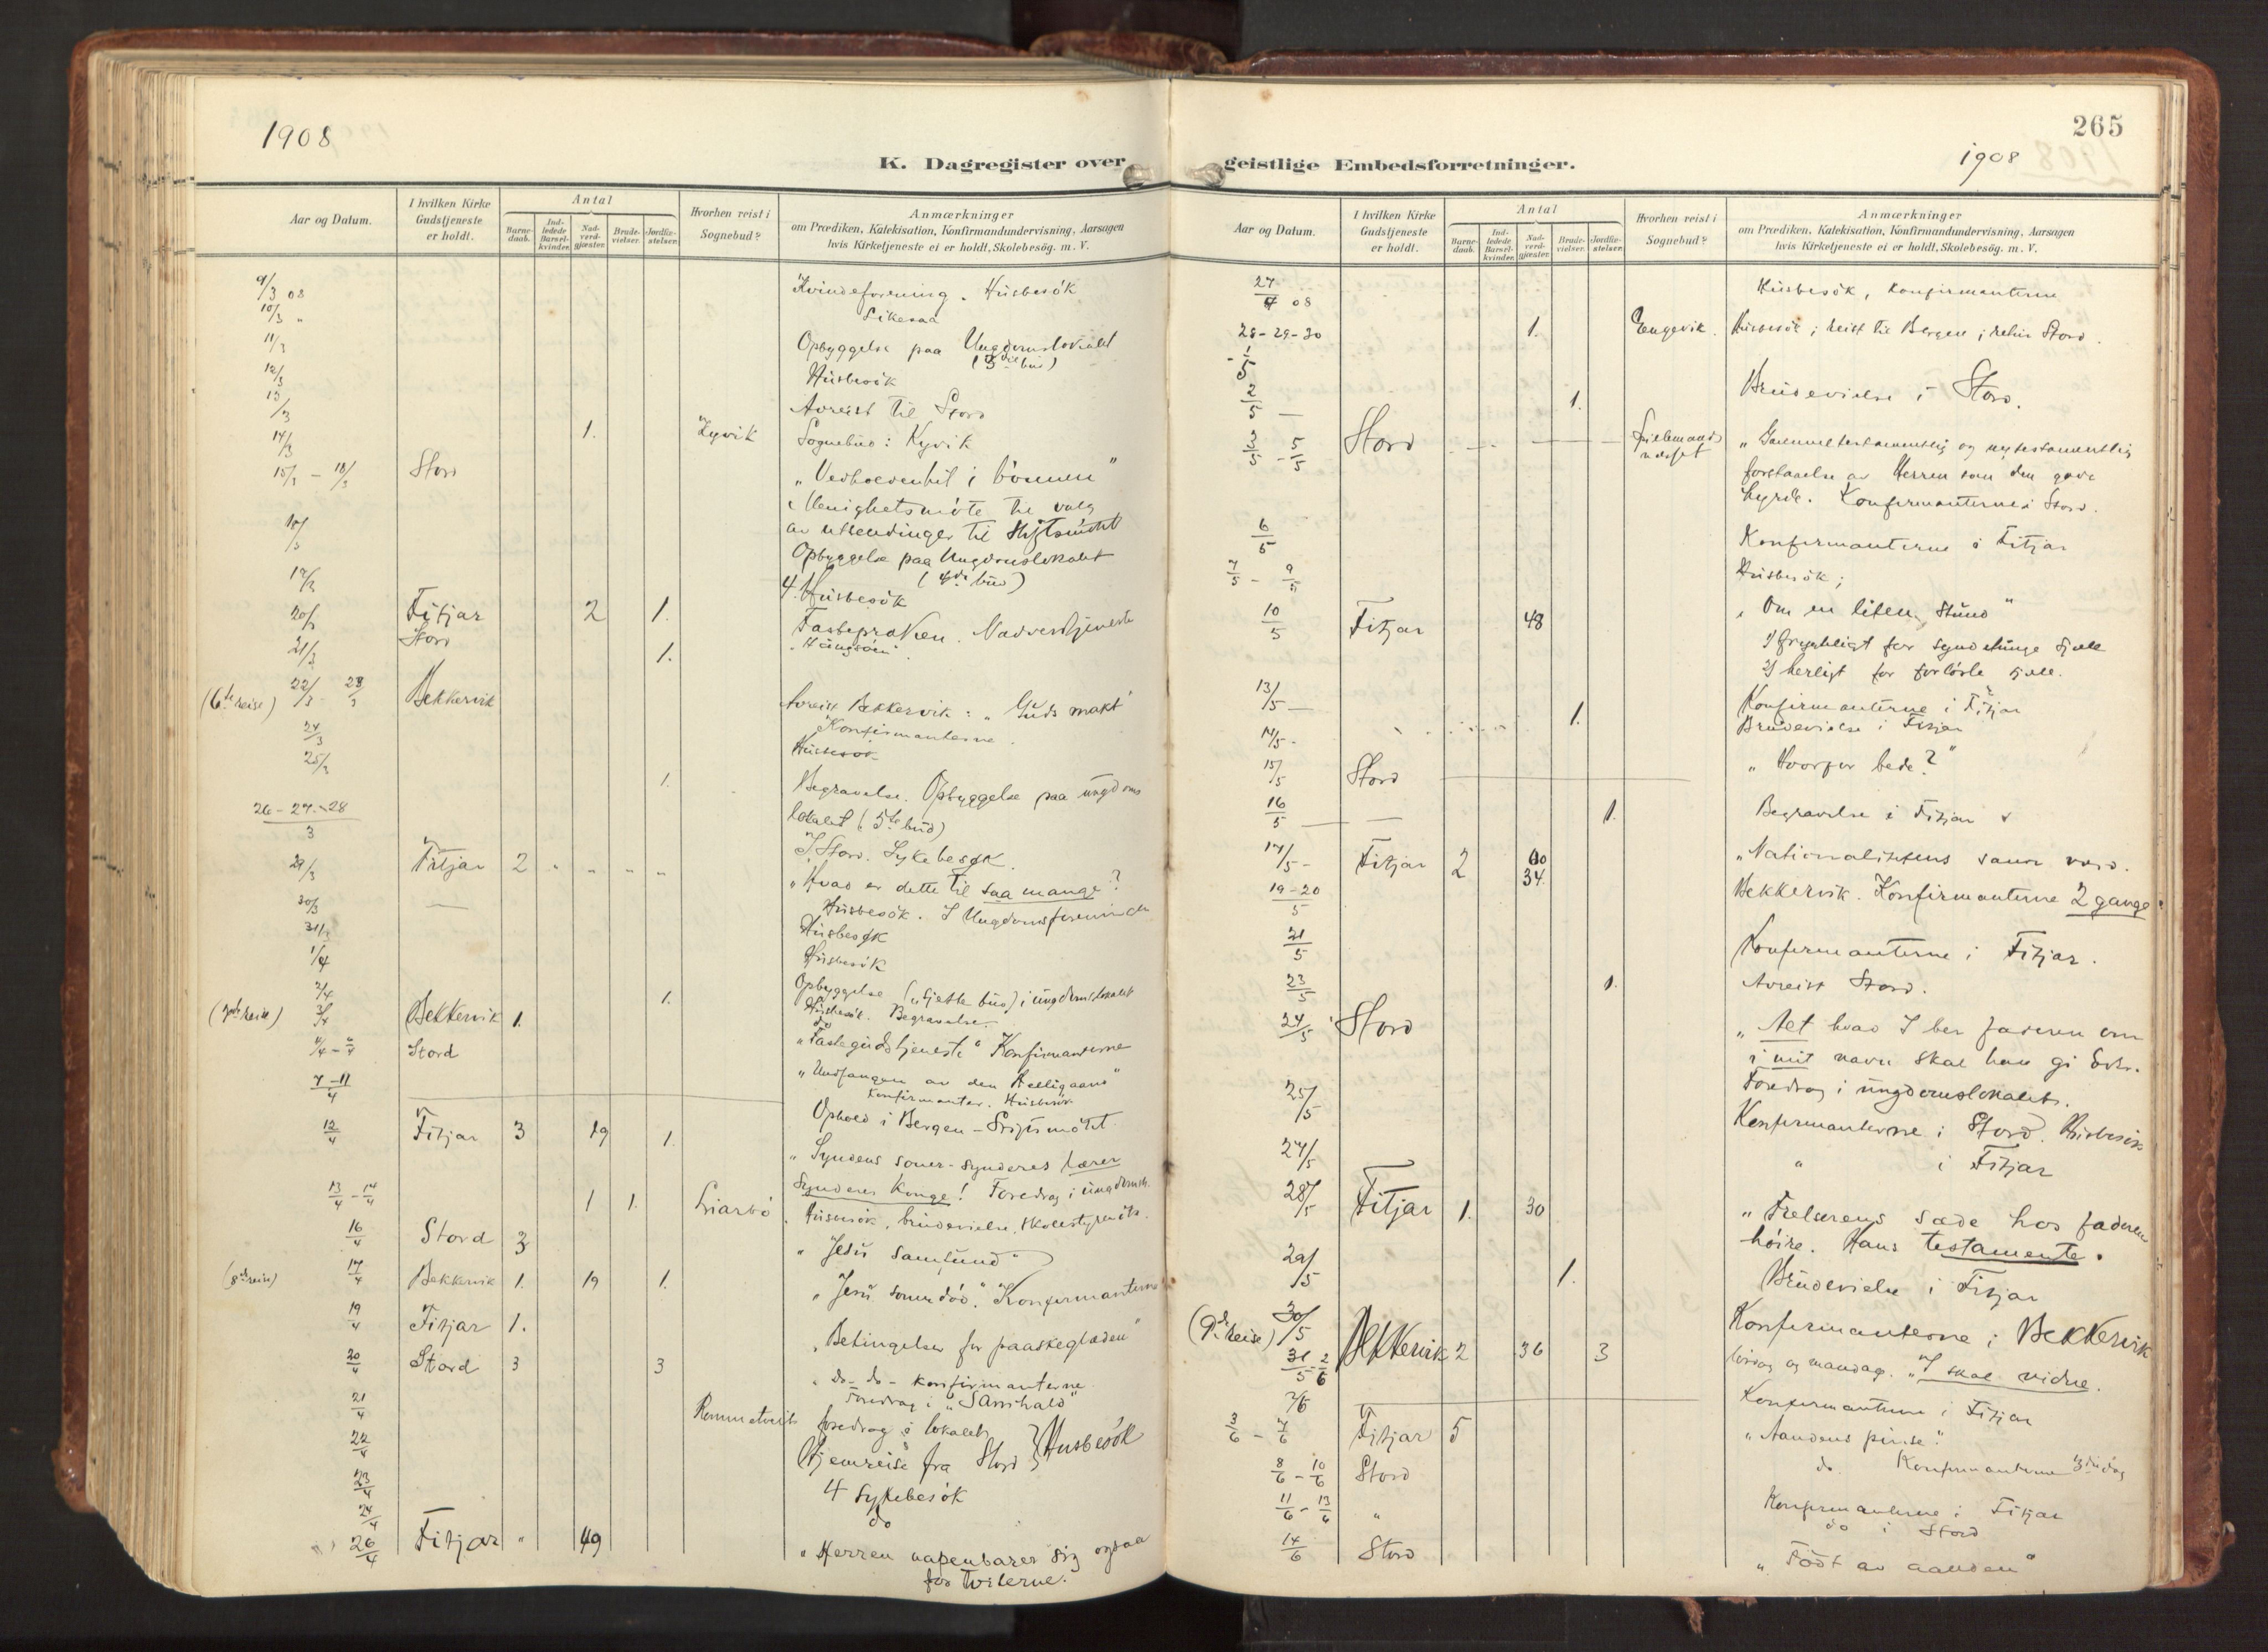 1908
K. Dagregister over
Aar og Datum.
I hvilken Kirke Gudstjeneste er holdt.
Antal
Barnedaab.
Indledede Barselkvinder.
Nadverdgjæster.
Brudevielser.
Jordfæstelser.
Hvorhen reist i Sognebud?
Anmærkninger
om Prædiken, Katekisation, Konfirmandundervisning, Aarsagen
hvis Kirketjeneste ei er holdt, Skolebesög. m. V.
9/3 08 Kvindeforening. Husbesök
10/3 " Likesaa
11/3 Opbyggelse paa Ungdomslokalet
(3die bud)
12/3 Husbesök
13/3 Avreist til Stord
14/3 1. Kyvik Sognebud: Kyvik
15/3 - 18/3 Stord "Vedholdenhet i bönnen"
Menighetsmöte til valg
av utsendinger til Stiftsmötet
Opbyggelse paa Ungdomslokalet
(4de bud)
4. Husbesök
20/3 Fitjar 2 1. Fastepræken. Nadverdtjeneste
Stord
21/3 1.
(6te reise) 22/3 - 23/3 Bekkervik Avreist Bekkervik: "Guds makt"
24/3 Konfirmanterne.
25/3 Husbesök
1. Begravelse. Opbyggelse paa ungdoms
lokalet (5te bud)
26-27-28/3 I Stord. Sykebesök.
29/3 Fitjar 2 " " " " "Hvad er dette til saa mange"?
30/3 — Husbesök. I Ungdomsforeningen
31/3 Husbesök
1/4 Husbesök
2/4 1. Opbyggelse ("Sjette bud) i ungdomslokalet
(7de reise) 3/4 Bekkervik 1. Husbesök. Begravelse.
do
Stord "Fastegudstjeneste" Konfirmanterne
"Undfangen av den Helligaand"
Konfirmanter. Husbesök
7-11/4 Ophold i Bergen - Stiftsmötet.
12/4 Fitjar 3 19 1. "Syndens soner - synderes lærer
Synderes Konge! Foredrag i ungdomsl.
13/4 - 14/4 1 1. Liarbö Husbesök, brudevielse, skolestyremöte.
16/4 Stord 3 "Jesu samfund"
(8de reise) 17/4 Bekkervik 1. 19 1. "Jesu soner död." Konfirmanterne
19/4 Fitjar 1. "Betingelser for paaskeglæden"
20/4 Stord 3 3 " do - do - Konfirmanterne
Foredrag i "Samhald"
21/4 Rommetveit foredrag i lokalet
22/4 Hjemreise fra Stord } Husbesök
23/4 4 sykebesök
24/4 do
26/4 Fitjar " 49 "Herren aapenbarer sig ogsaa
for tvilerne.
265
1908
geistlige Embedsforretninger.
Aar og Datum.
I hvilken Kirke Gudstjeneste er holdt.
Antal
Barnedaab.
Indledede Barselkvinder.
Nadverdgjæster.
Brudevielser.
Jordfæstelser.
Hvorhen reist i Sognebud?
Anmærkninger
om Prædiken, Katekisation, Konfirmandundervisning, Aarsagen
hvis Kirketjeneste ei er holdt, Skolebesög. m. V.
27/4 08 Husbesök, Konfirmanterne
28-29-30 1. Engevik. Husbesök; reist til Bergen; retur Stord.
- 1/5
2/5 — 1. Brudevielse i Stord.
3/5 - 5/5 Stord "Gammeltestamentlig og nytestamentlig
forstaaelse av Herren som den gode
hyrde. Konfirmanterne i Stord.
6/5 Konfirmanterne i Fitjar
7/5 - 9/5 Husbesök;
10/5 Fitjar 48 "Om en liten stund"
1) frygteligt for syndetunge sjæle
2) herligt for forlöste sjæle.
13/5 — Konfirmanterne i Fitjar
14/5 - 1. Brudevielse i Fitjar
15/5 Stord "Hvorfor bede?"
16/5 — 1. Begravelse i Fitjar
17/5 - Fitjar 2 34. "Nationalitetens sande værd.
19-20/5 Bekkervik. Konfirmanterne 2 gange.
21/5 Konfirmanterne i Fitjar.
23/5 1. Avreist Stord.
24/5 Stord "Alt hvad I ber faderen om
i mit navn skal han gi Eder.
25/5 Foredrag i ungdomslokalet.
Konfirmanterne i Stord. Husbesök
27/5 " i Fitjar
28/5 Fitjar 1. 30 "Frelserens sæde hos faderens
höire. Hans testamente.
29/5 1. Brudevielse i Fitjar
(9de reise) 30/5 Konfirmanterne i Bekkervik
31/5 - 2/6 Bekkervik 2 36 3 lördag og mandag. "I skal vidne.
2/6 Konfirmanterne i Fitjar
3/6 - 7/6 Fitjar 5 "Aandens pinse".
8/6 - 10/6 Stord do. Konfirmanterne 3die dag
11/6 - 13/6 " Konfirmanterne i Fitjar
do i Stord
14/6 Stord "Född av aanden"